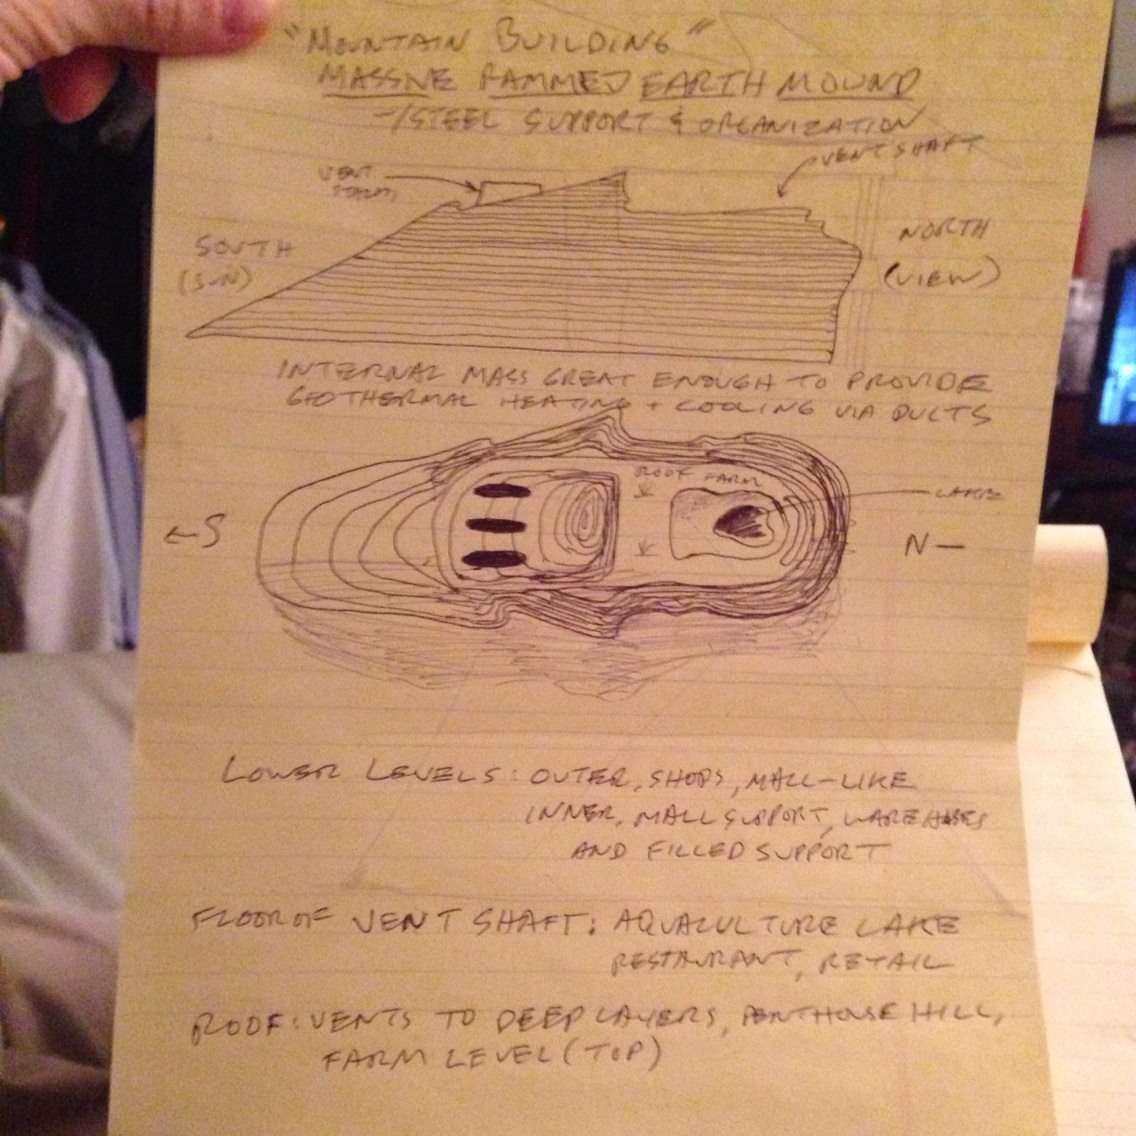 "MOUNTAIN BUILDING"
MASSIVE RAMMED EARTH MOUND
W/STEEL SUPPORT & ORGANIZATION
VENT SHAFT
VENT
SOUTH
(SUN)
NORTH
(VIEW)
INTERNAL MASS GREAT ENOUGH TO PROVIDE
GEOTHERMAL HEATING + COOLING VIA DUCTS
ROOF FARM
LAKE
←S
N—
LOWER LEVELS: OUTER, SHOPS, MALL-LIKE
INNER, MALL SUPPORT, WAREHOUSES
AND FILLED SUPPORT
FLOOR OF VENT SHAFT: AQUACULTURE LAKE
RESTAURANT, RETAIL
ROOF: VENTS TO DEEP LAYERS, PENTHOUSE HILL,
FARM LEVEL (TOP)